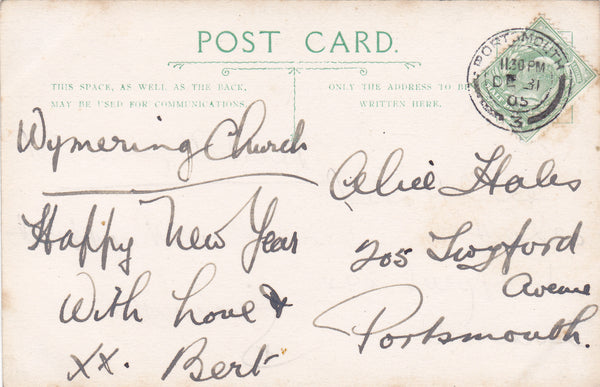 POST CARD.
THIS SPACE, AS WELL AS THE BACK,
MAY BE USED FOR COMMUNICATIONS.
ONLY THE ADDRESS TO BE
WRITTEN HERE.
PORTSMOUTH
11.30 PM
DE 31
05
3
Wymering Church
Happy New Year
With love &
XX. Bert
Alice Hales
205 Twyford
Avenue
Portsmouth.